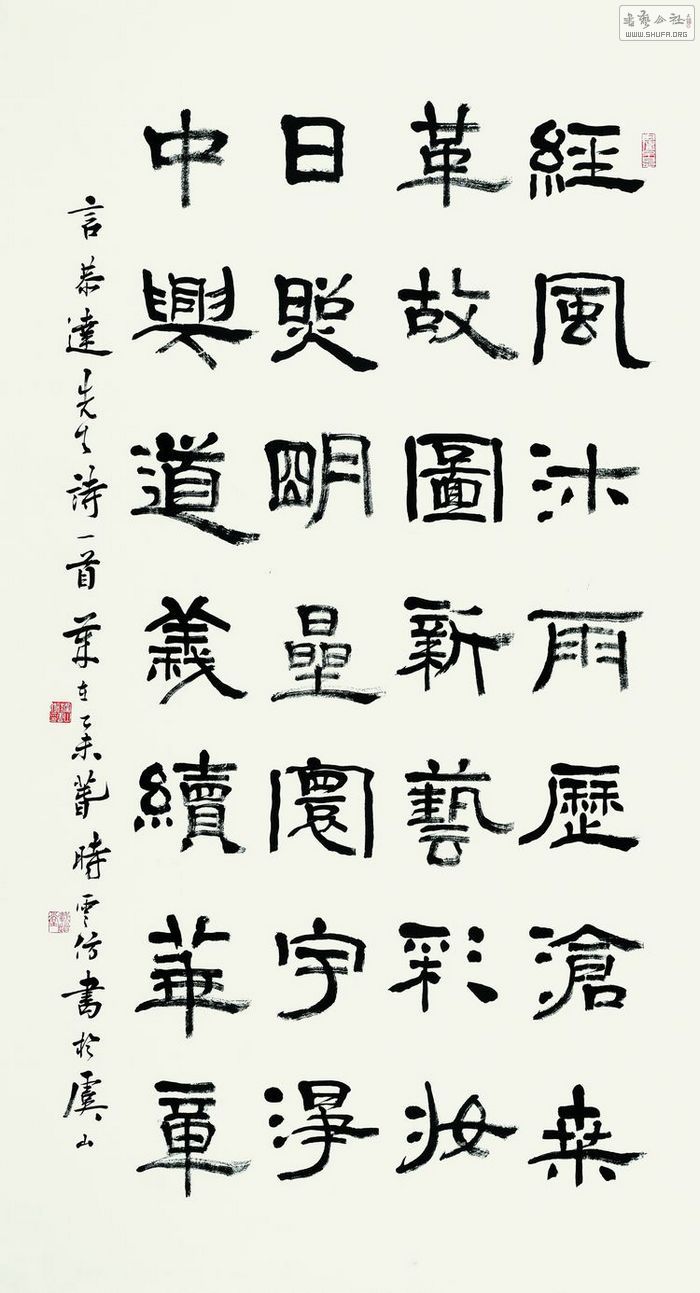 書藝公社
WWW.SHUFA.ORG
經風沐雨歷滄桒
革故圖新藝彩妝
日照明星寰宇淨
中興道義續華章
言恭達先生詩一首 歲在乙未 時雲仿書於虞山